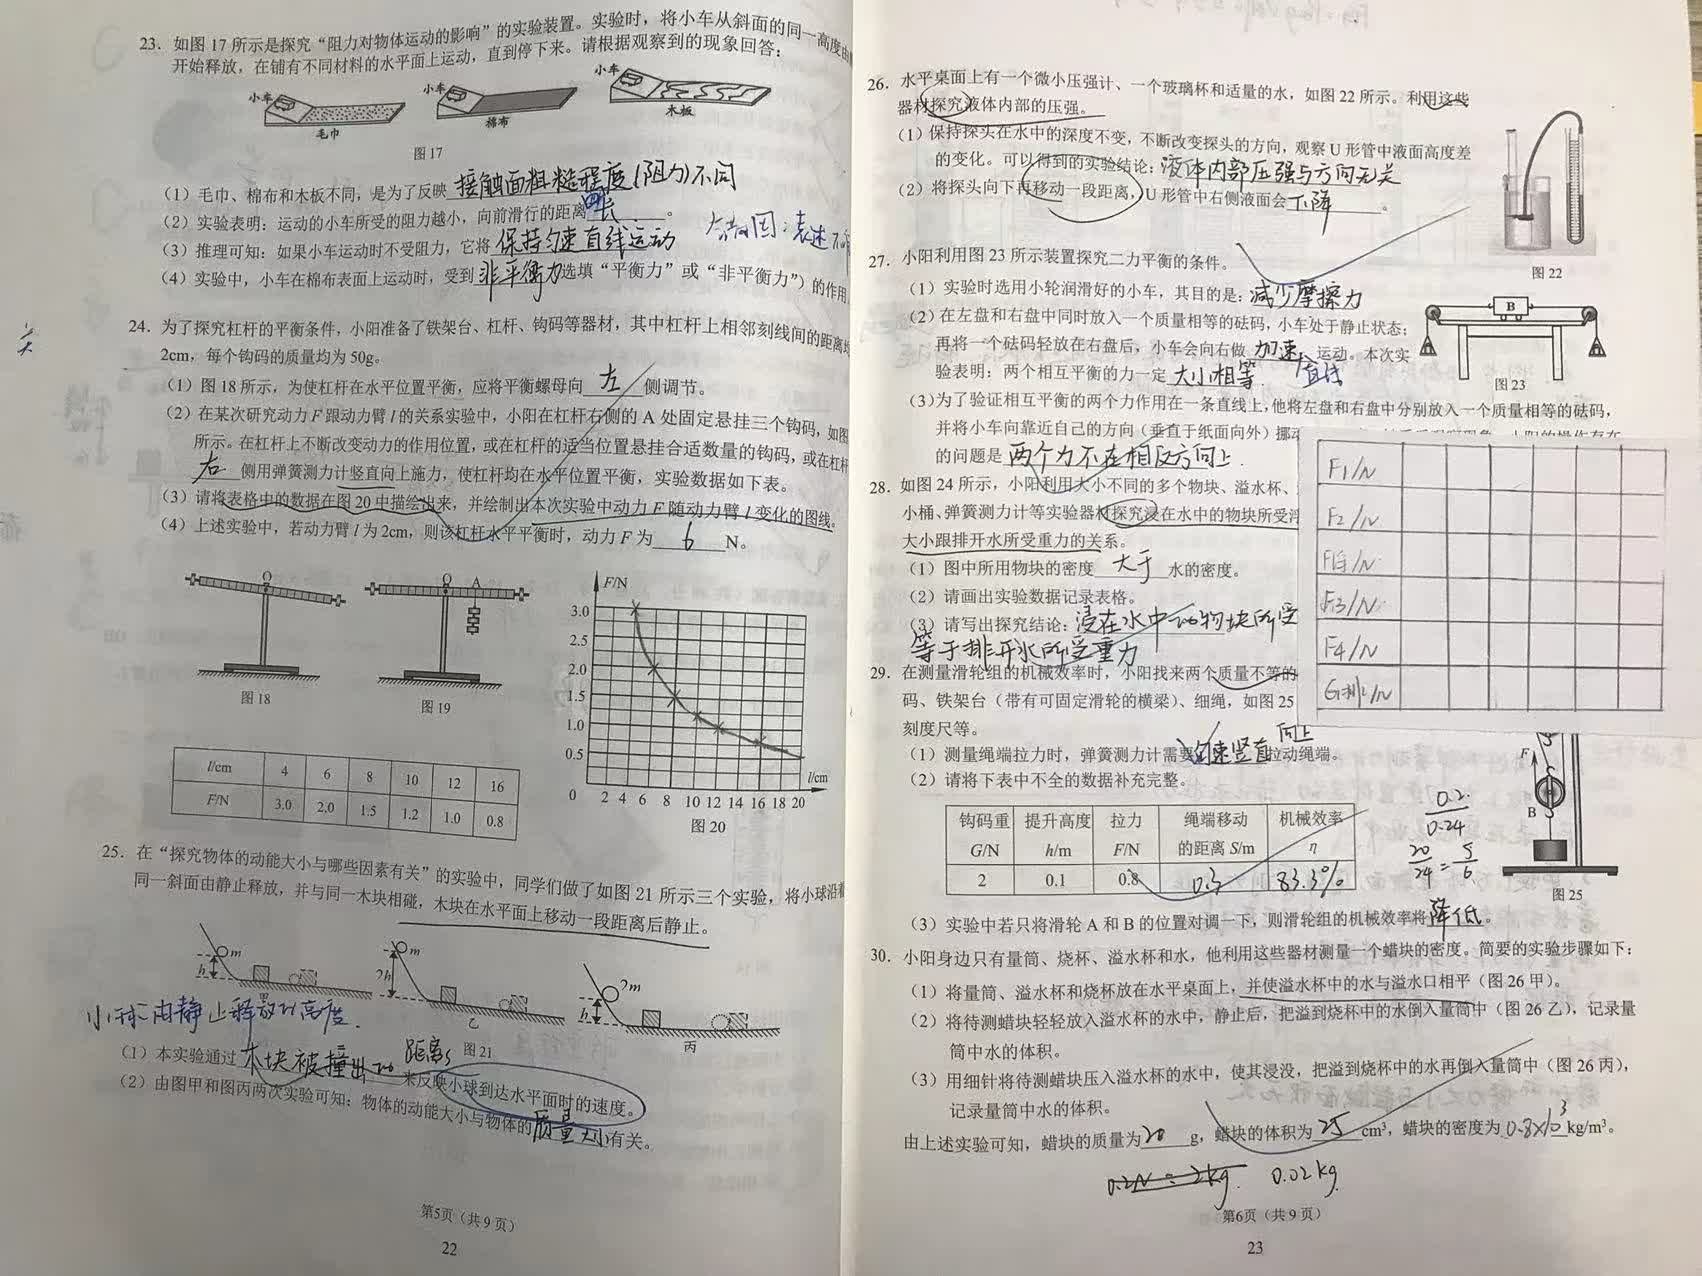 23. 如图 17 所示是探究“阻力对物体运动的影响”的实验装置。实验时，将小车从斜面的同一高度由
开始释放，在铺有不同材料的水平面上运动，直到停下来。请根据观察到的现象回答：
小车 小车 小车
毛巾 棉布 木板
图 17
（1）毛巾、棉布和木板不同，是为了反映 接触面粗糙程度(阻力)不同
（2）实验表明：运动的小车所受的阻力越小，向前滑行的距离 长 。
（3）推理可知：如果小车运动时不受阻力，它将 保持匀速直线运动
（4）实验中，小车在棉布表面上运动时，受到 非平衡力 选填“平衡力”或“非平衡力”）的作用
24. 为了探究杠杆的平衡条件，小阳准备了铁架台、杠杆、钩码等器材，其中杠杆上相邻刻线间的距离均
2cm，每个钩码的质量均为 50g。
（1）图 18所示，为使杠杆在水平位置平衡，应将平衡螺母向 左 侧调节。
（2）在某次研究动力 F 跟动力臂 l 的关系实验中，小阳在杠杆右侧的 A 处固定悬挂三个钩码，如图
所示。在杠杆上不断改变动力的作用位置，或在杠杆的适当位置悬挂合适数量的钩码，或在杠杆
右 侧用弹簧测力计竖直向上施力，使杠杆均在水平位置平衡，实验数据如下表。
（3）请将表格中的数据在图 20 中描绘出来，并绘制出本次实验中动力 F 随动力臂 l 变化的图线。
（4）上述实验中，若动力臂 l 为 2cm，则该杠杆水平平衡时，动力 F 为 6 N。
O
图 18
O A
图 19
F/N
3.0
2.5
2.0
1.5
1.0
0.5
0 2 4 6 8 10 12 14 16 18 20
l/cm
图 20
l/cm 4 6 8 10 12 16
F/N 3.0 2.0 1.5 1.2 1.0 0.8
25. 在“探究物体的动能大小与哪些因素有关”的实验中，同学们做了如图 21 所示三个实验，将小球沿着
同一斜面由静止释放，并与同一木块相碰，木块在水平面上移动一段距离后静止。
m h
m 2h 乙
2m h 丙
图 21
小球由静止释放的高度.
（1）本实验通过 木块被撞出的 距离s 来反映小球到达水平面时的速度。
（2）由图甲和图丙两次实验可知：物体的动能大小与物体的 质量大小 有关。
第5页（共 9 页）
22
26. 水平桌面上有一个微小压强计、一个玻璃杯和适量的水，如图 22 所示。利用这些
器材探究液体内部的压强。
（1）保持探头在水中的深度不变，不断改变探头的方向，观察 U 形管中液面高度差
的变化。可以得到的实验结论：液体内部压强与方向无关
（2）将探头向下再移动一段距离，U 形管中右侧液面会 下降 。
图 22
27. 小阳利用图 23 所示装置探究二力平衡的条件。
（1）实验时选用小轮润滑好的小车，其目的是：减少摩擦力
（2）在左盘和右盘中同时放入一个质量相等的砝码，小车处于静止状态；
再将一个砝码轻放在右盘后，小车会向右做 加速 直线 运动。本次实
验表明：两个相互平衡的力一定 大小相等.
B
图 23
（3）为了验证相互平衡的两个力作用在一条直线上，他将左盘和右盘中分别放入一个质量相等的砝码，
并将小车向靠近自己的方向（垂直于纸面向外）挪
的问题是 两个力不在相反方向上.
28. 如图 24 所示，小阳利用大小不同的多个物块、溢水杯、
小桶、弹簧测力计等实验器材探究浸在水中的物块所受浮
大小跟排开水所受重力的关系。
（1）图中所用物块的密度 大于 水的密度。
（2）请画出实验数据记录表格。
（3）请写出探究结论：浸在水中的物块所受
等于排开水所受重力
F1/N
F2/N
F浮/N
F3/N
F4/N
G排/N
29. 在测量滑轮组的机械效率时，小阳找来两个质量不等的
码、铁架台（带有可固定滑轮的横梁）、细绳，如图 25
刻度尺等。
（1）测量绳端拉力时，弹簧测力计需要 匀速竖直 向上 拉动绳端。
（2）请将下表中不全的数据补充完整。
钩码重 G/N 提升高度 h/m 拉力 F/N 绳端移动的距离 S/m 机械效率 η
2 0.1 0.8 0.3 83.3%
0.2
0.24
20/24=5/6
F
B
图 25
（3）实验中若只将滑轮 A 和 B 的位置对调一下，则滑轮组的机械效率将 降低 。
30. 小阳身边只有量筒、烧杯、溢水杯和水，他利用这些器材测量一个蜡块的密度。简要的实验步骤如下：
（1）将量筒、溢水杯和烧杯放在水平桌面上，并使溢水杯中的水与溢水口相平（图 26 甲）。
（2）将待测蜡块轻轻放入溢水杯的水中，静止后，把溢到烧杯中的水倒入量筒中（图 26 乙），记录量
筒中水的体积。
（3）用细针将待测蜡块压入溢水杯的水中，使其浸没，把溢到烧杯中的水再倒入量筒中（图 26 丙），
记录量筒中水的体积。
由上述实验可知，蜡块的质量为 20 g，蜡块的体积为 25 cm³，蜡块的密度为 0.8×10³ kg/m³。
0.2N=2kg. 0.02kg
第6页（共 9 页）
23